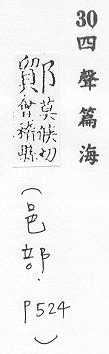 30四聲篇海
鄮莫候切
會稽縣
(邑部.P524)